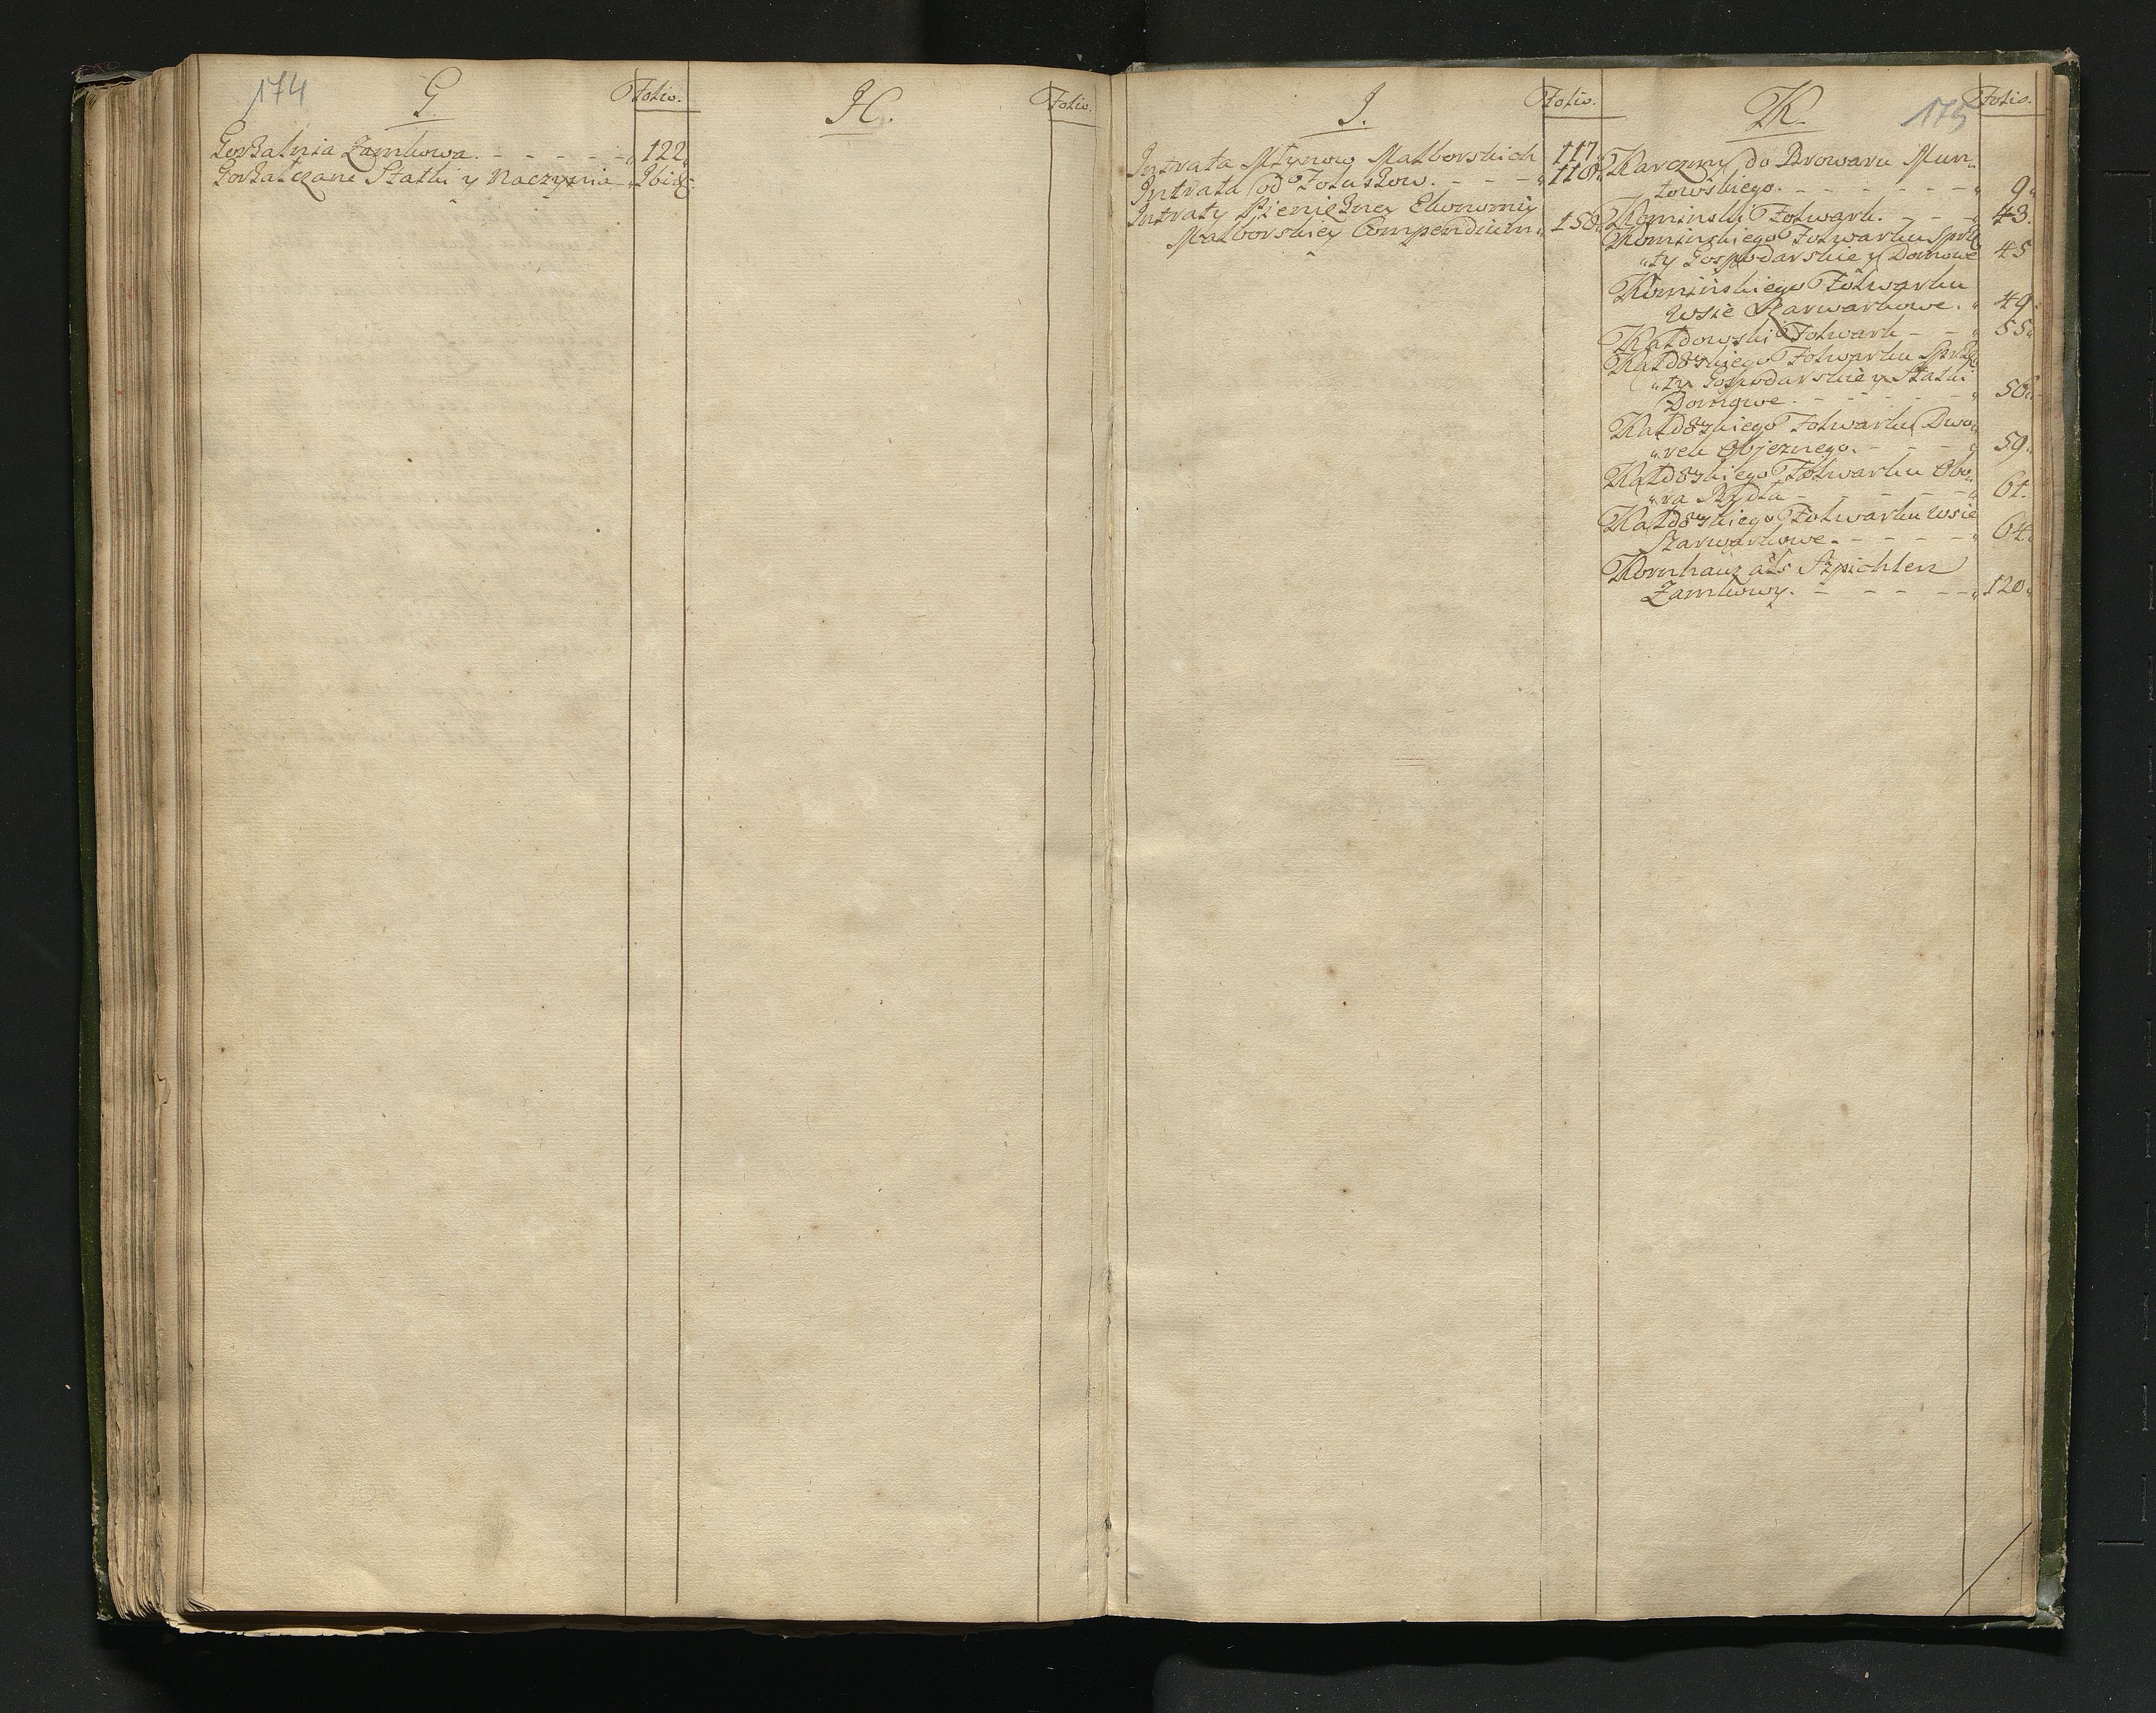 174
G.
Folio.
Gorzalnia Zamkowa. - - - - - " 122.
Gorzalczane Statki y Naczynia " Ibid:
H.
Folio.
I.
Folio.
Intrata Młynow Malborskich 117.
Intrata od Zołuszow. - - - " 118.
Intraty Pienięzney Ekonomiy
Malborskiey Compendium " 158.
K.
175
Folio.
Karczmy do Browaru Mun"
towskiego. - - - - - - " 9.
Kominski Folwark. - - - " 43.
Kominskiego Folwarku Sprzę"
"ty Gospodarskie y Domowe 45
Kominskiego Folwarku
Wsie Szarwarkowe. " 49.
Kałdowski Folwark - - " 55.
Kałdowskiego Folwarku Sprzę"
"ty Gospodarskie y Statki
Domowe. - - - - - " 56.
Kałdowskiego Folwarku Dwo"
"rek Objeznego. - - - " 59.
Kałdowskiego Folwarku Obo"
"ra Bydła - - - - - " 61.
Kałdowskiego Folwarku Wsie
Szarwarkowe. - - - - " 64.
Kornhauz als Szpichlerz
Zamkowy. - - - - - " 120.